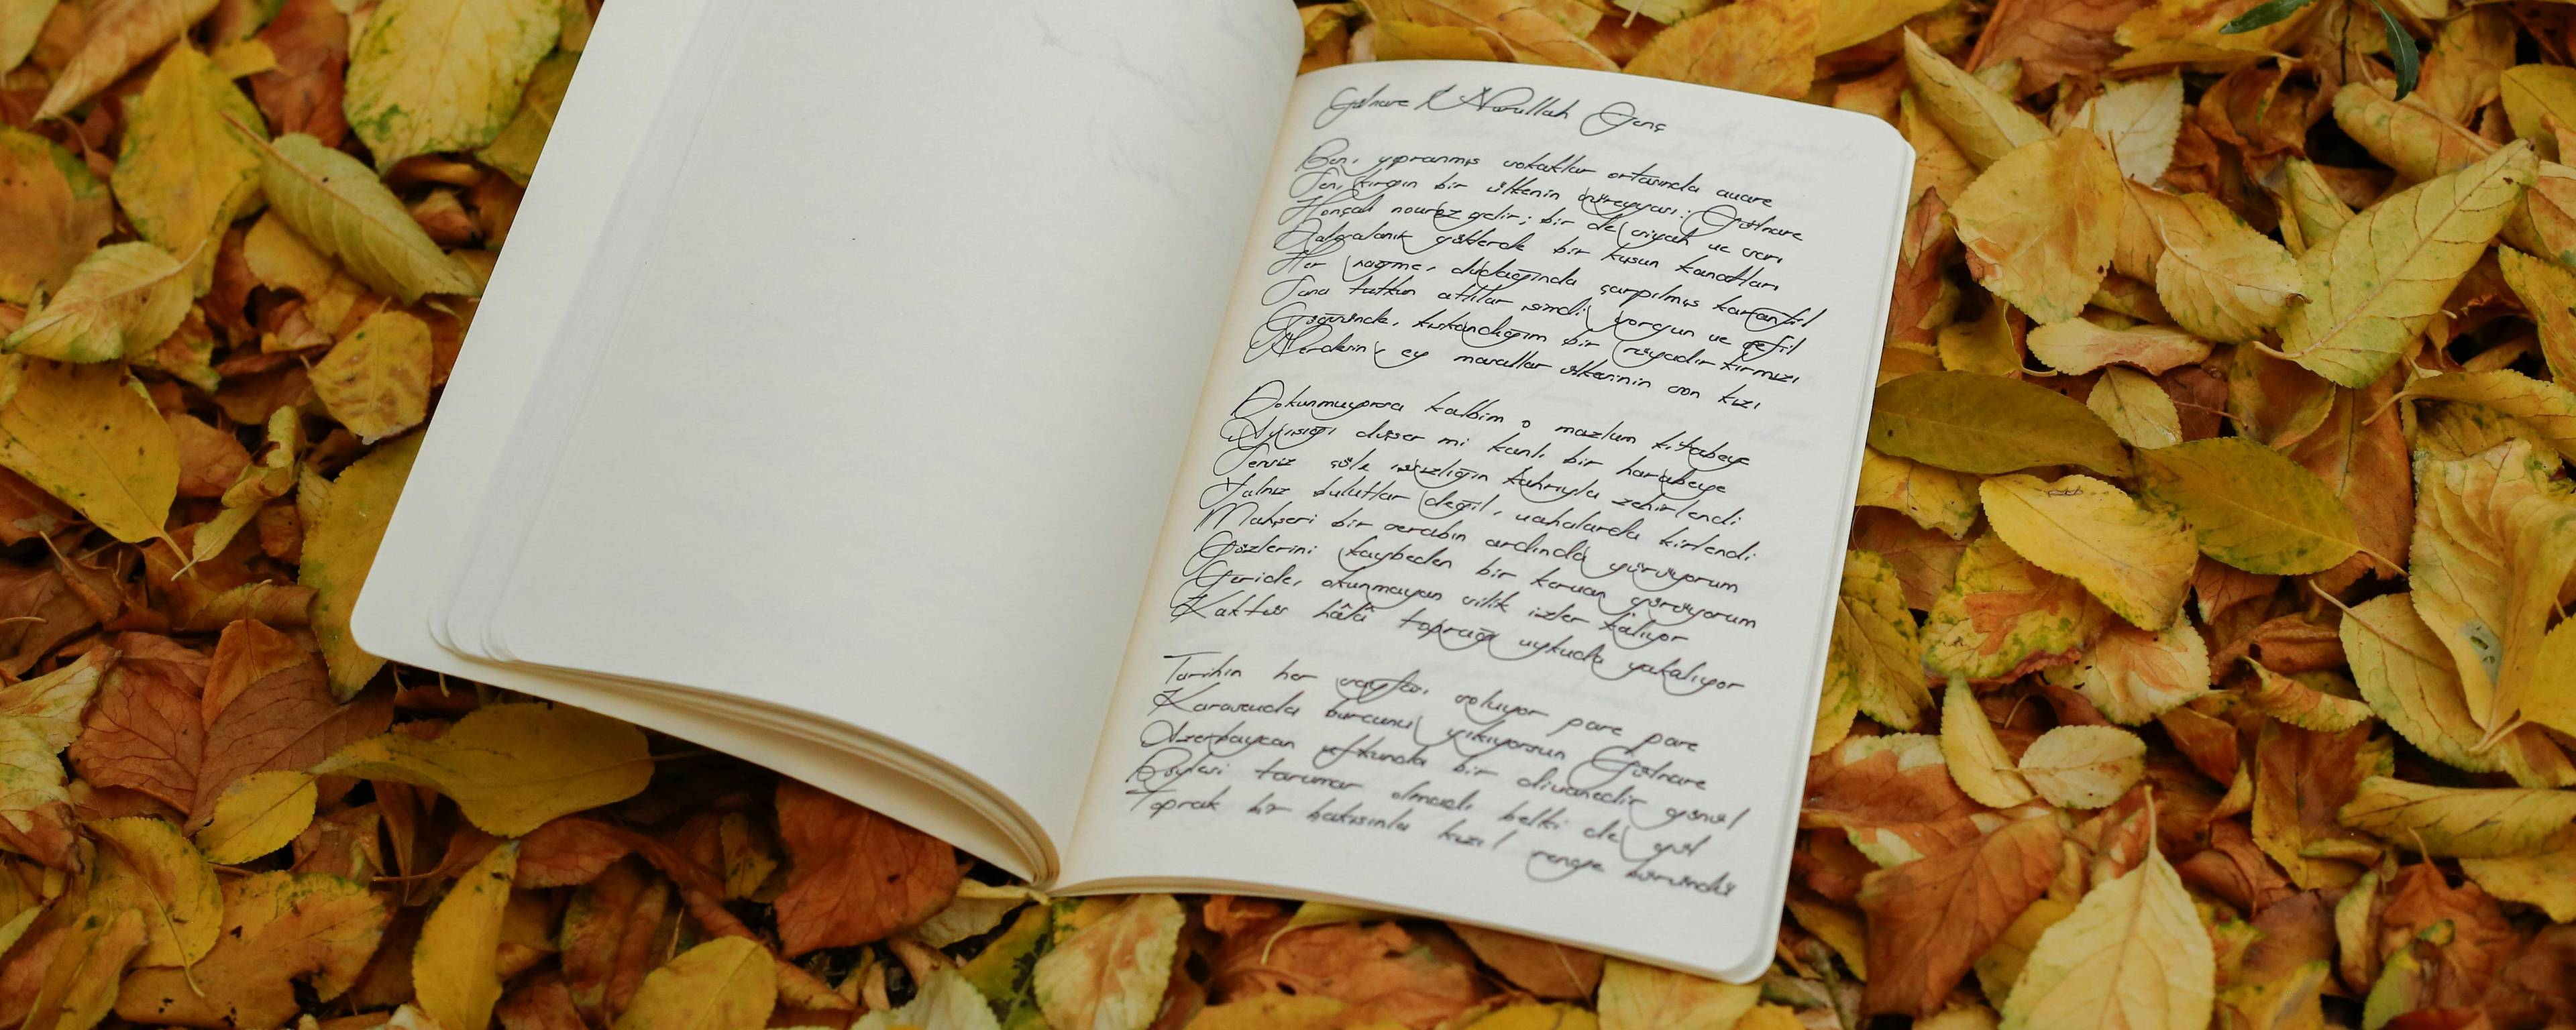 Gülnare / Nurullah Genç
Ben, yıpranmış sokaklar ortasında avare
Sen, kırgın bir ülkenin süreyyası: Gülnare
Hançalı nevruz gelir; bir de siyah ve sarı
Dalgalanır göklerde bir kuşun kanatları
Her nağme, dudağında çarpılmış karanfil
Sana tutkun atlılar şimdi yorgun ve sefil
Göğsünde, kıskandığım bir rüyadır kırmızı
Nerdesin, ey marallar ülkesinin son kızı
Dokunmuyorsa kalbim o mazlum kitabeye
Ay ışığı düşer mi kanlı bir harabeye
Sensiz çöle ıssızlığın kahrıyla zehirlendi
Yalnız bulutlar değil, vahalarda kirlendi
Mahşeri bir serabın ardında yürüyorum
Gözlerini kaybeden bir kervan görüyorum
Geride, okunmayan silik izler kalıyor
Kaktüs hâlâ toprağı uykuda yakalıyor
Tarihin her sayfası soluyor pare pare
Karasevda burcunu yıkıyorsun Gülnare
Azerbaycan ufkunda bir divanedir gönül
Böylesi tarumar olmadı belki de gül
Toprak bir bakışınla kızıl renge büründü